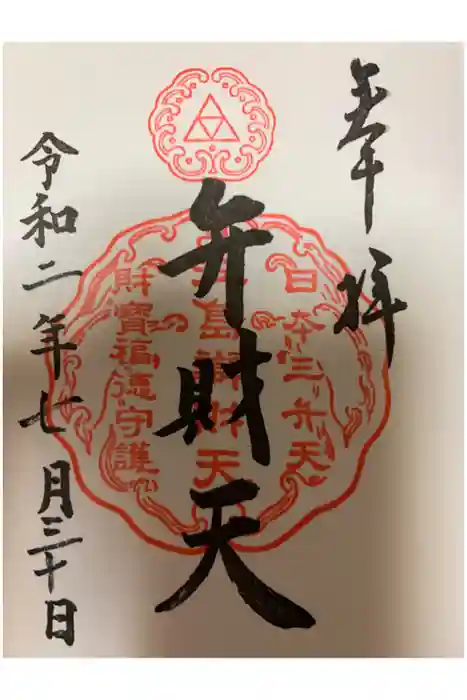 奉拝
日本三弁天
弁財天
島
財天
財寶福徳守護
令和二年七月三十日